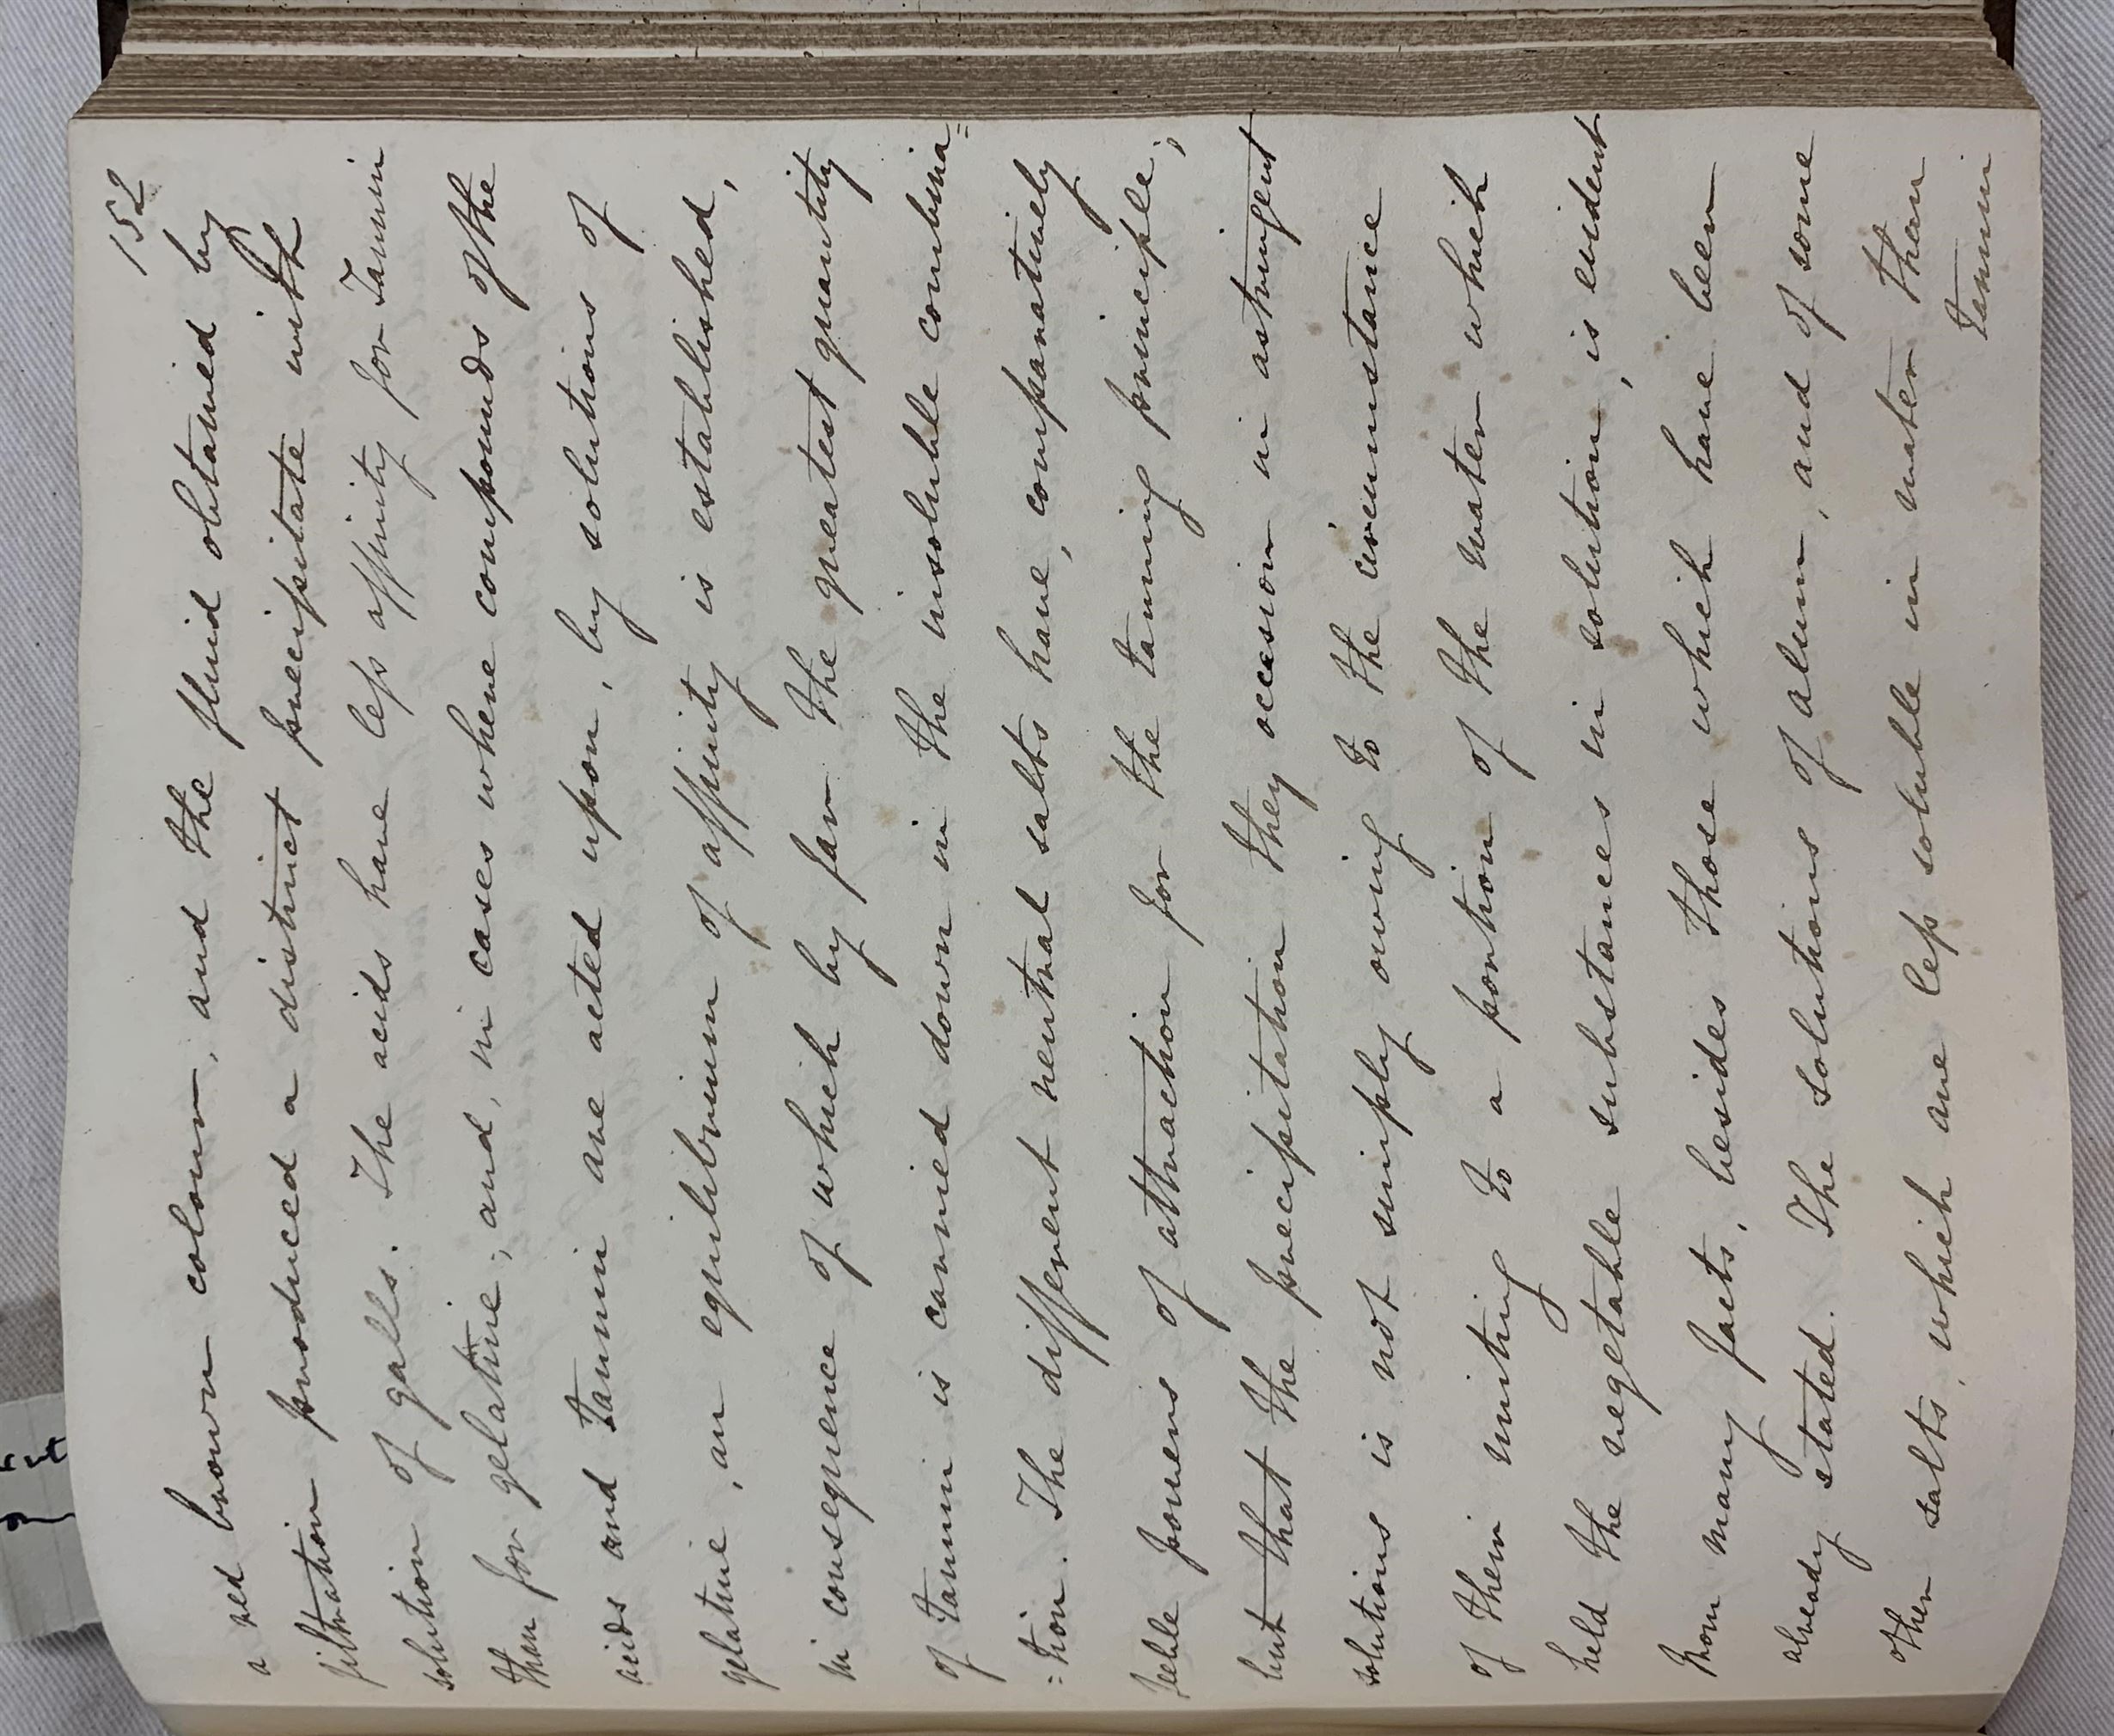 152
a red brown colour, and the fluid obtained by
filtration produced a distinct precipitate with
solution of galls. The acids have less affinity for Tannin
than for gelatine; and, in cases where compounds of the
acids and tannin are acted upon, by solutions of
gelatine, an equilibrium of affinity is established,
in consequence of which by far the greatest quantity
of tannin is carried down in the insoluble combina=
=tion. The different neutral salts have, comparatively
feeble powers of attraction for the tanning principle;
but that the precipitation they occasion in astringent
solutions is not simply owing to the circumstance
of their uniting to a portion of the water which
held the vegetable substances in solution, is evident
from many facts, besides those which have been
already stated. The solutions of alum, and of some
other salts, which are less soluble in water than
tannin